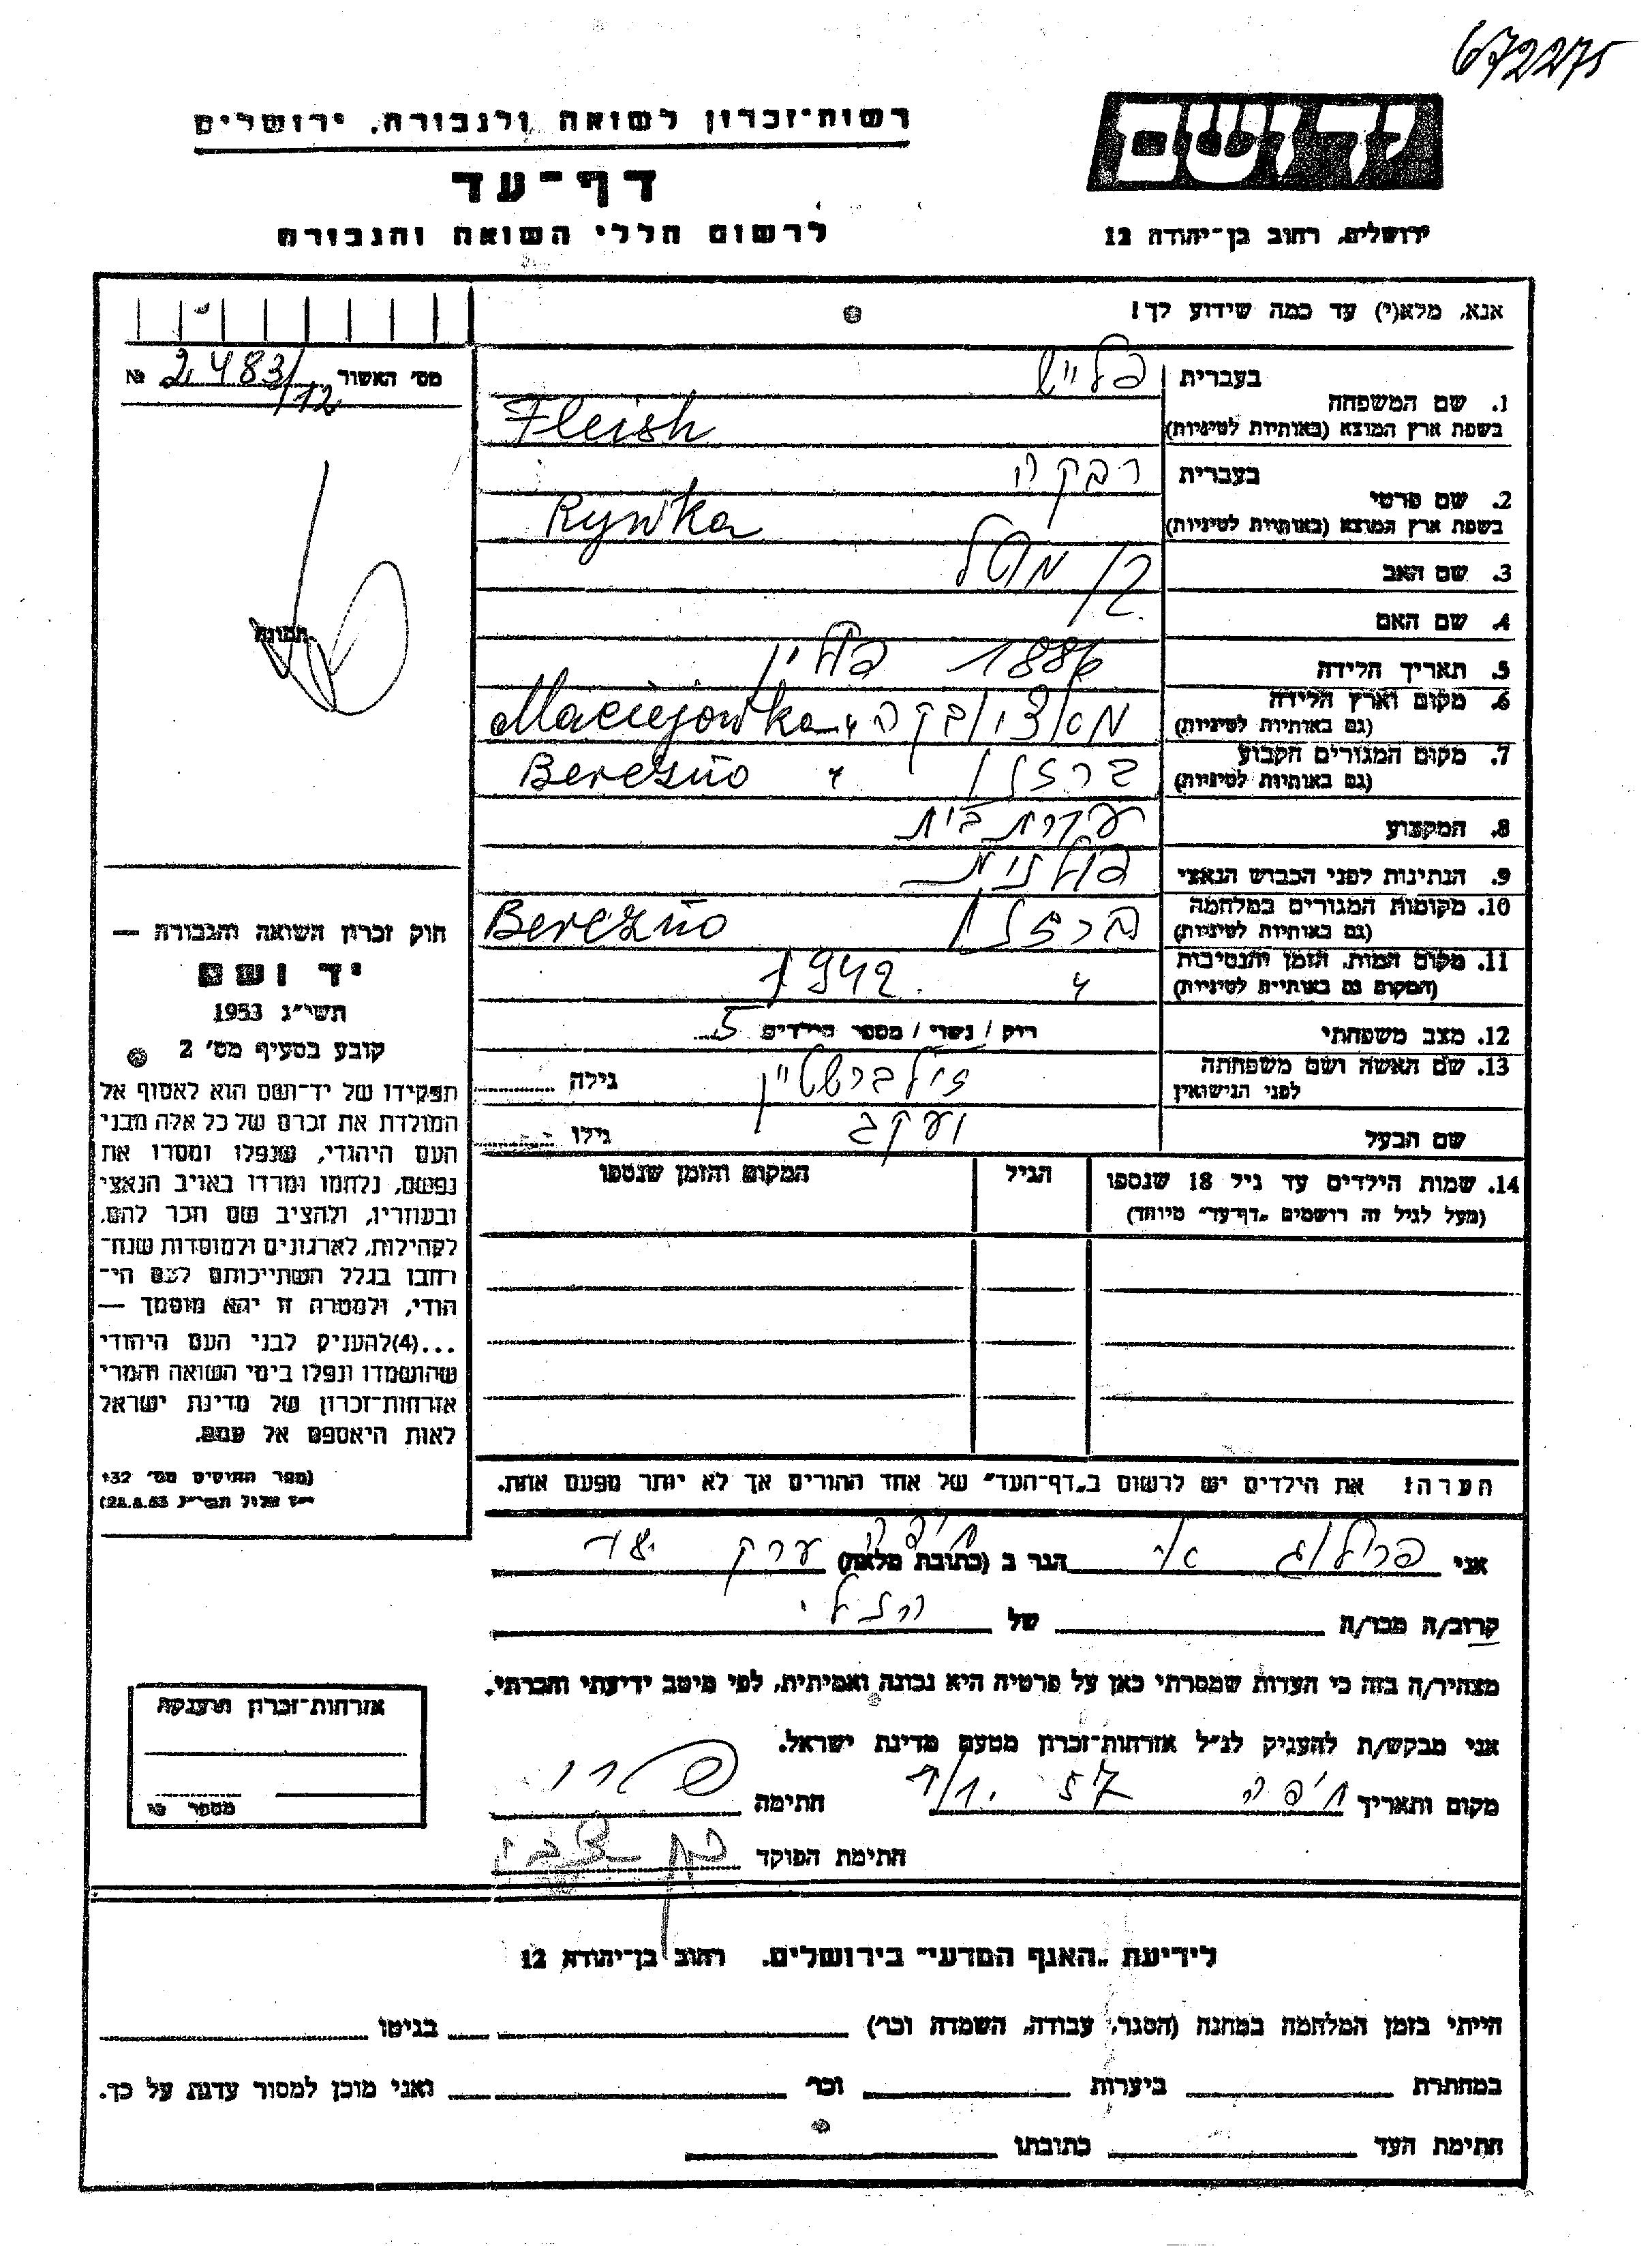 672275
יד ושם
רשות־זכרון לשואה ולגבורה, ירושלים
דף־עד
לרשום חללי השואה והגבורה
ירושלים, רחוב בן־יהודה 12
אנא, מלא(י) עד כמה שידוע לך!
מס׳ האשור 2.483/12 №
1. שם המשפחה
בעברית פלייש
בשפת ארץ המוצא (באותיות לטיניות) Fleish
2. שם פרטי
בעברית רבקה
בשפת ארץ המוצא (באותיות לטיניות) Rywka
3. שם האב
4. שם האם
5. תאריך הלידה 1886 פולין
6. מקום וארץ הלידה
(גם באותיות לטיניות) Maciejowka
7. מקום המגורים הקבוע
(גם באותיות לטיניות) Berezno
8. המקצוע עקרת בית
9. הנתינות לפני הכבוש הנאצי פולנית
10. מקומות המגורים במלחמה
(גם באותיות לטיניות) Berezno
11. מקום המות, הזמן והנסיבות
(המקום גם באותיות לטיניות) 1942
12. מצב משפחתי רוק / נשוי / מספר הילדים 5
13. שם האשה ושם משפחתה
לפני הנישואין זילברשטיין גילה
שם הבעל יעקב גילו
14. שמות הילדים עד גיל 18 שנספו
(מעל לגיל זה רושמים „דף־עד״ מיוחד)
הגיל
המקום והזמן שנספו
הערה: את הילדים יש לרשום ב„דף־העד״ של אחד ההורים אך לא יותר מפעם אחת.
תמונה
חוק זכרון השואה והגבורה —
יד ושם
תשי״ג 1953
קובע בסעיף מס׳ 2
תפקידו של יד־ושם הוא לאסוף אל
המולדת את זכרם של כל אלה מבני
העם היהודי, שנפלו ומסרו את
נפשם, נלחמו ומרדו באויב הנאצי
ובעוזריו, ולהציב שם וזכר להם,
לקהילות, לארגונים ולמוסדות שנח־
רבו בגלל השתייכותם לעם הי־
הודי, ולמטרה זו יהא מוסמך —
...(4)להעניק לבני העם היהודי
שהושמדו ונפלו בימי השואה והמרי
אזרחות־זכרון של מדינת ישראל
לאות היאספם אל עמם.
(ספר החוקים מס׳ 132
י״ז אלול תשי״ג 28.8.53)
אני הגר ב (כתובת מלאה) חיפה
קרוב/ה מכר/ה של
מצהיר/ה בזה כי העדות שמסרתי כאן על פרטיה היא נכונה ואמיתית, לפי מיטב ידיעתי והכרתי.
אני מבקש/ת להעניק לנ״ל אזרחות־זכרון מטעם מדינת ישראל.
מקום ותאריך חיפה 57 חתימה
חתימת הפוקד
אזרחות־זכרון הוענקה
מספר
לידיעת „האגף המדעי״ בירושלים, רחוב בן־יהודה 12
הייתי בזמן המלחמה במחנה (הסגר, עבודה, השמדה וכו׳) בגיטו
במחתרת ביערות וכו׳ ואני מוכן למסור עדות על כך.
חתימת העד כתובתו